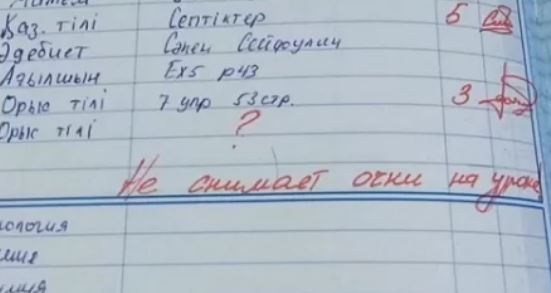 Қаз. тілі Септіктер 5
Әдебиет Сәкен Сейфулин
Ағылшын Ex5 p43
Орыс тілі 7 упр 53стр. 3
Орыс тілі ?
Не снимает очки на уроке